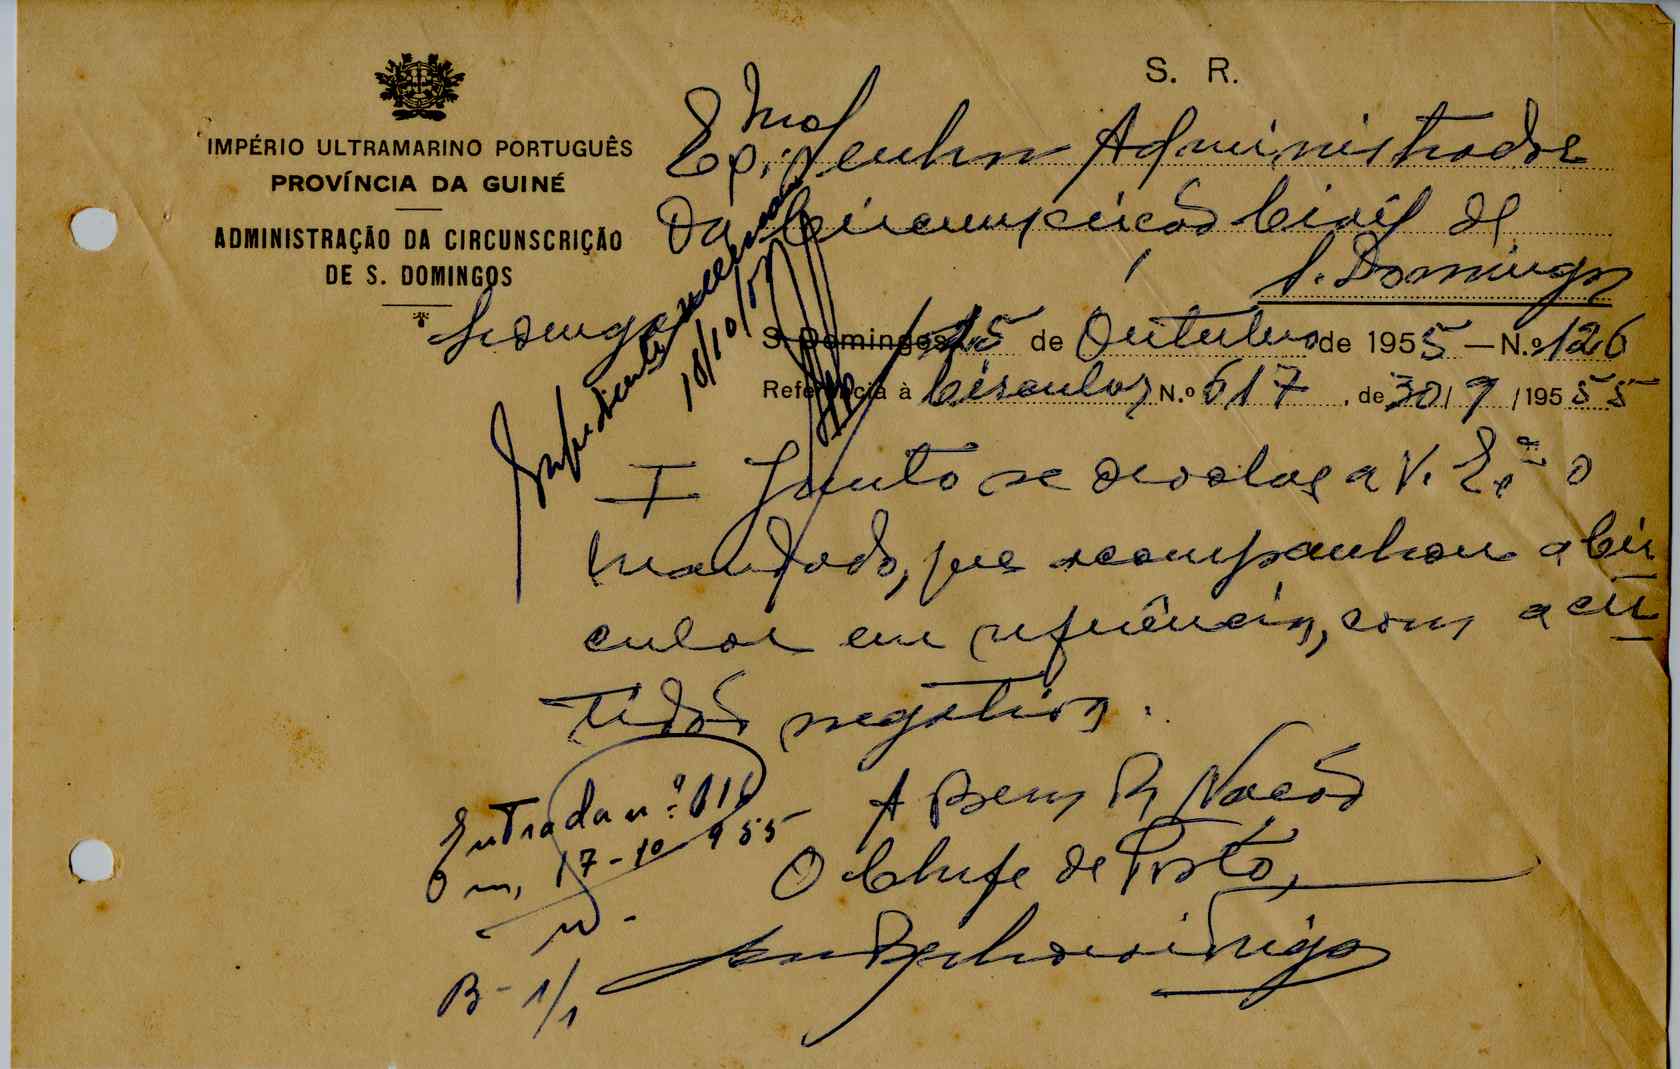 S. R.
IMPÉRIO ULTRAMARINO PORTUGUÊS
PROVÍNCIA DA GUINÉ
ADMINISTRAÇÃO DA CIRCUNSCRIÇÃO
DE S. DOMINGOS
Exmo. Senhor Administrador
da Circunscrição Civil de
S. Domingos
S. Domingos, 15 de Outubro de 1955 — N.º 126
Referência à Circular N.º 617, de 30/9/1955 55
18/10/55
I Junto se devolve a V. Exª o
mandado, que acompanhou a Cir
cular em referência, com a cer
tidão negativa.
A Bem da Nação
O Chefe de Posto,
Entrada nº 616
Em, 17-10-955
B-1/1